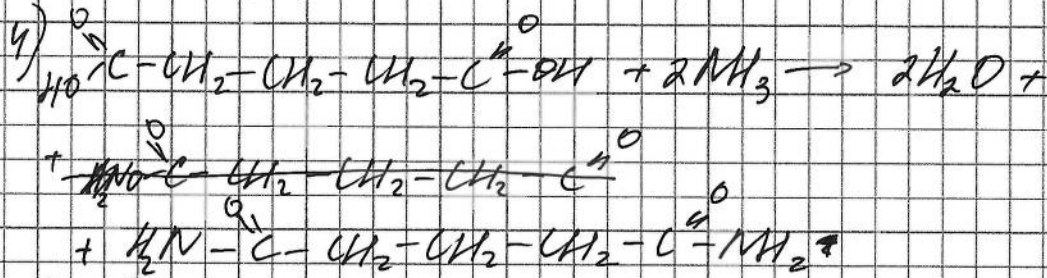 4) HO-C(=O)-CH₂-CH₂-CH₂-C(=O)-OH + 2NH₃ → 2H₂O +
+ H₂N-C(=O)-CH₂-CH₂-CH₂-C=O
+ H₂N-C(=O)-CH₂-CH₂-CH₂-C(=O)-NH₂